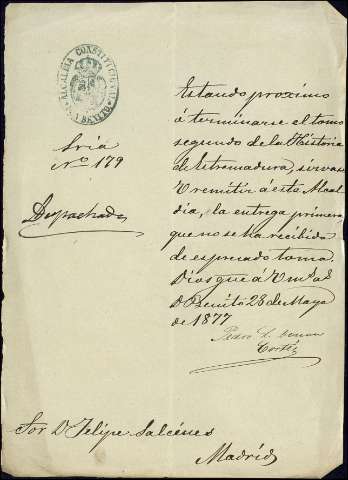 ALCALDIA CONSTITUCIONAL
D. BENITO
Sria
Nº 179
Despachada
Estando proximo
á terminarse el tomo
segundo de la Historia
de Estremadura, sirvase
V remitir á esta Alcal
dia, la entrega primera
que no se ha recibido
de espresado tomo.
Dios gue á V m.s a.s
D. Benito 28 de Mayo
de 1877
Pedro
Cortés
Sor D. Felipe
Madrid